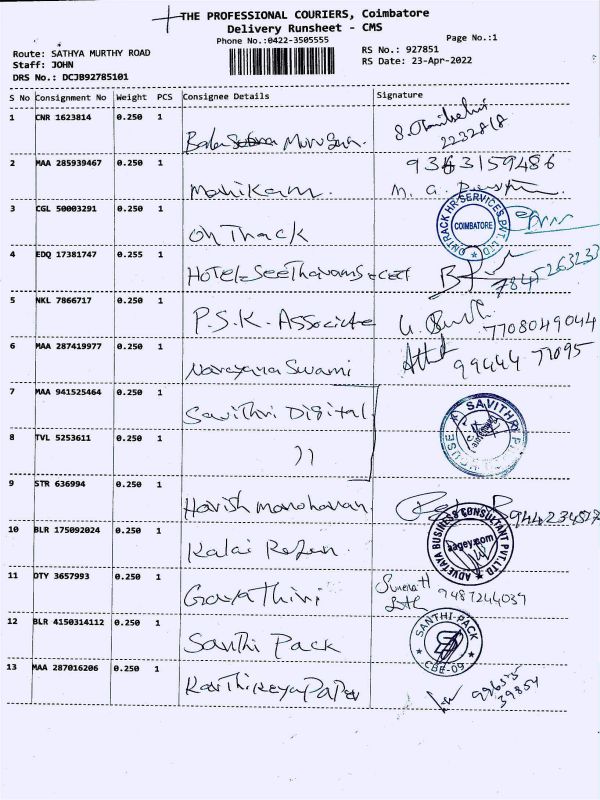 THE PROFESSIONAL COURIERS, Coimbatore
Delivery Runsheet - CMS
Phone No.:0422-3505555
Page No.:1
Route: SATHYA MURTHY ROAD
RS No.: 927851
Staff: JOHN
RS Date: 23-Apr-2022
DRS No.: DCJB92785101
S No Consignment No Weight PCS Consignee Details Signature
1 CNR 1623814 0.250 1 Murugan
2232818
2 MAA 285939467 0.250 1 Manikam
M. G.
3 CGL 50003291 0.250 1 On Thack
ONTRACK HR SERVICES PVT. LTD
COIMBATORE
4 EDQ 17381747 0.255 1 Hotel
7845263233
5 NKL 7866717 0.250 1 P.S.K. Associate
7708049044
6 MAA 287419977 0.250 1 Narayana Swami
99444 77095
7 MAA 941525464 0.250 1 Savithri Digital
SAVITHRI
8 TVL 5253611 0.250 1 ))
9 STR 636994 0.250 1 Harish manoharan
10 BLR 175092024 0.250 1 Kalai
ADVETAYA BUSINESS CONSULTANT PVT.LTD
11 DTY 3657993 0.250 1 Gayathiri
9487244039
12 BLR 4150314112 0.250 1 Santhi Pack
SANTHI-PACK
CBE-09
13 MAA 287016206 0.250 1 Karthikeya Paper
39854